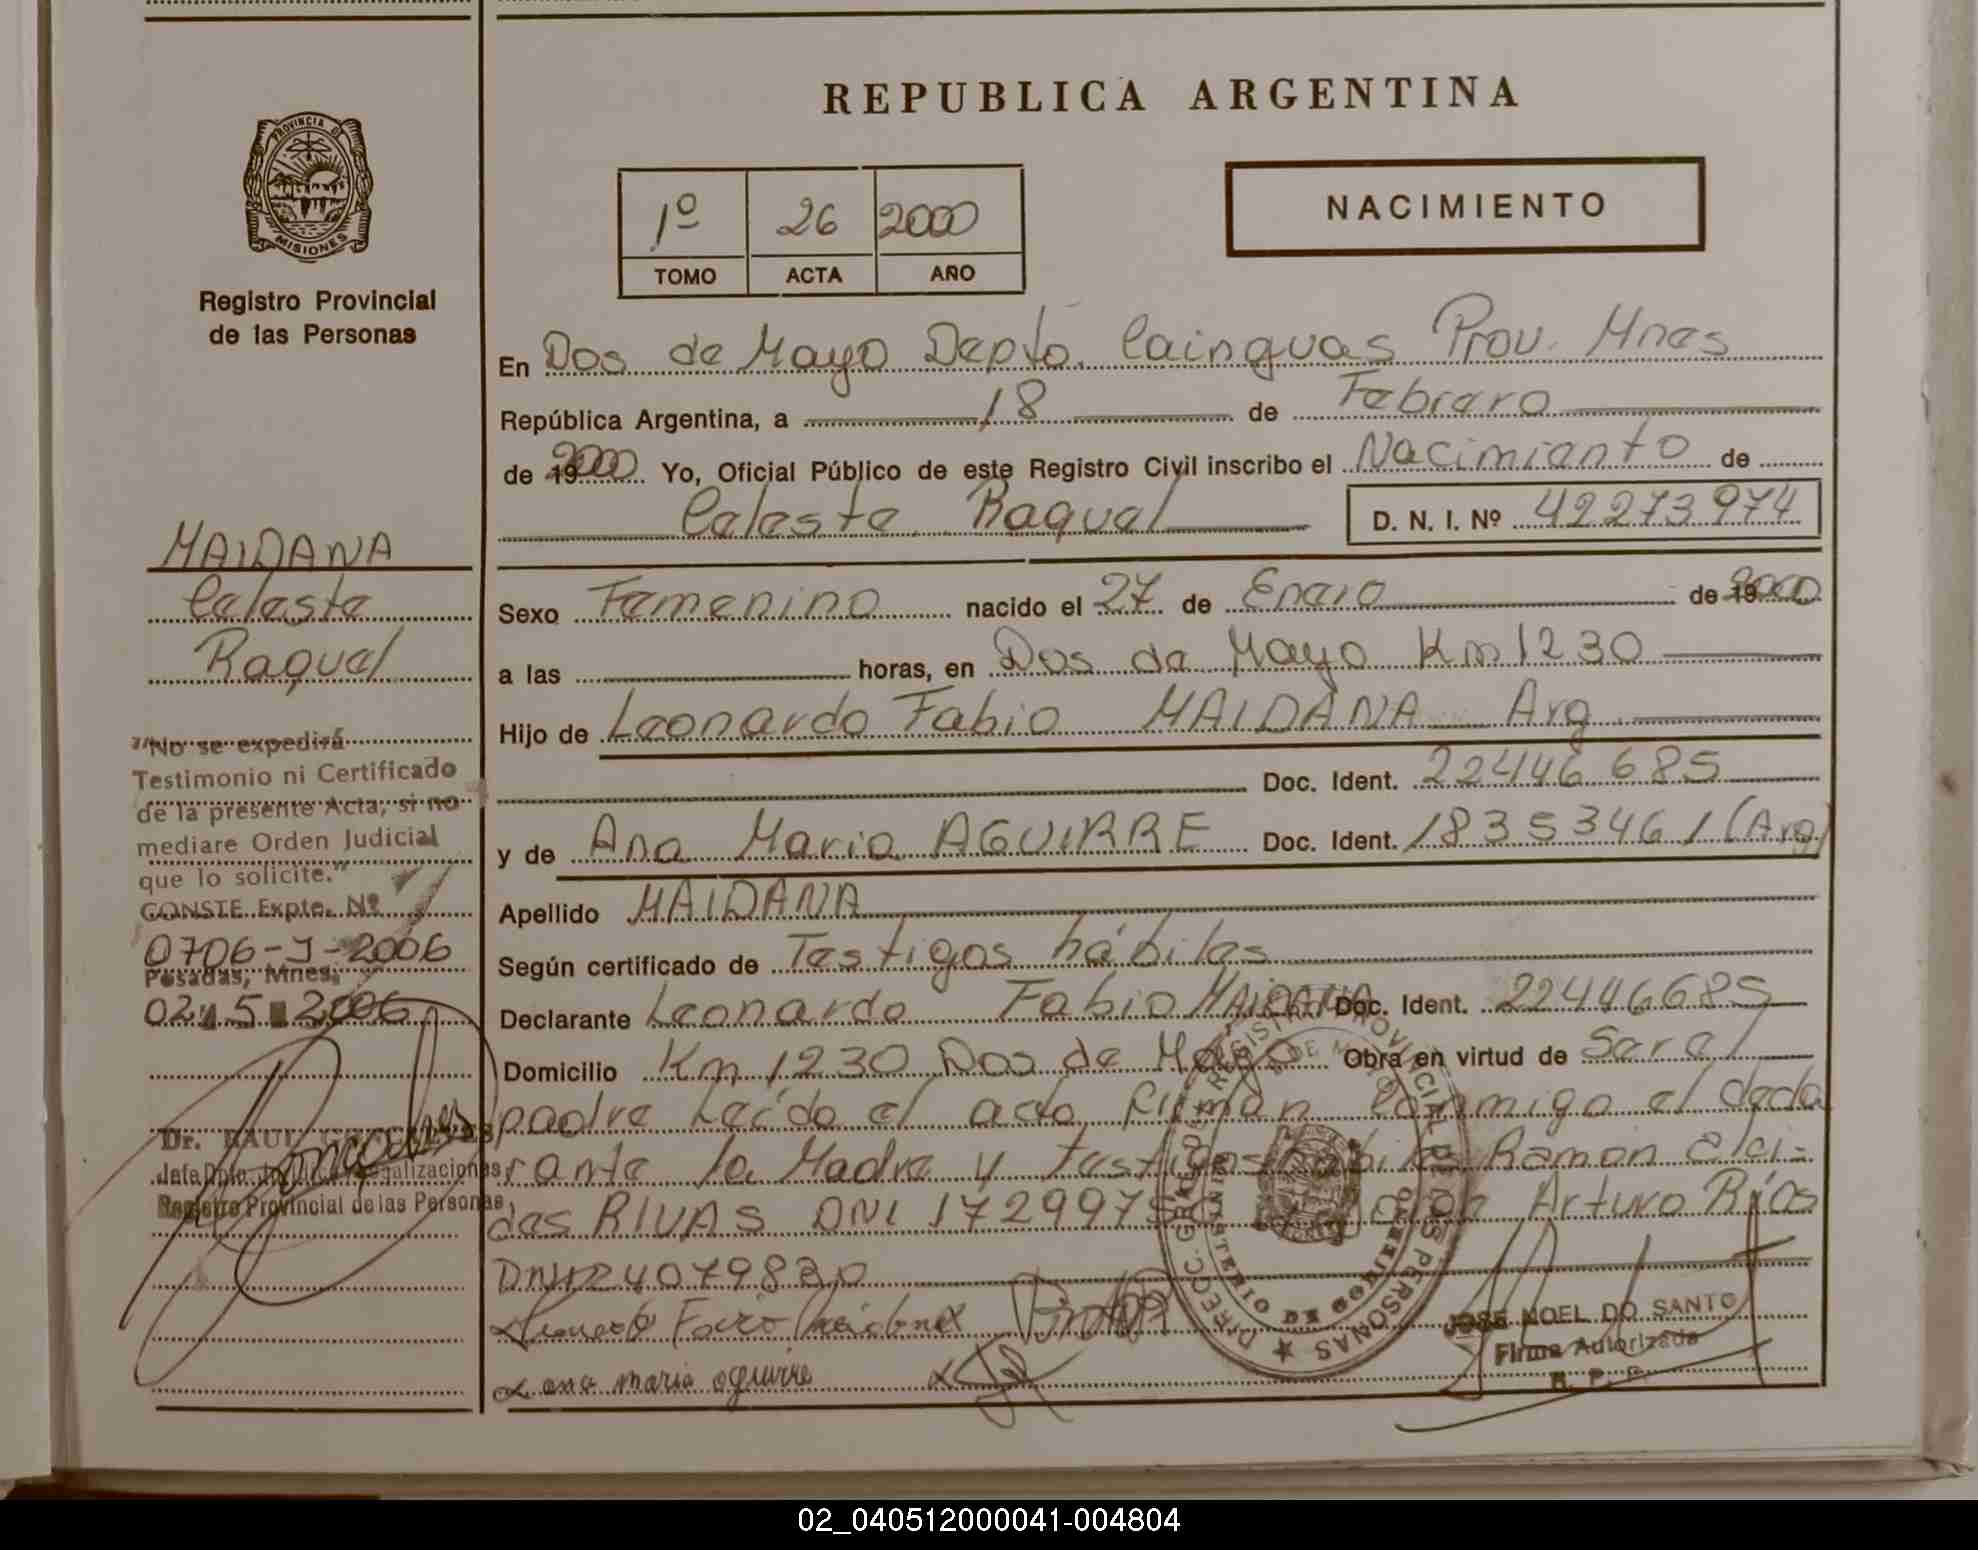 REPUBLICA ARGENTINA
PROVINCIA DE
MISIONES
Registro Provincial
de las Personas
1º 26 2000
TOMO ACTA AÑO
NACIMIENTO
En Dos de Mayo Depto. Cainguas Prov. Mnes
República Argentina, a 18 de Febrero
de 19 2000 Yo, Oficial Público de este Registro Civil inscribo el Nacimiento de
Celeste Raquel D. N. I. Nº 42273974
Sexo Femenino nacido el 27 de Enero de 19 2000
a las horas, en Dos de Mayo Km 1230
Hijo de Leonardo Fabio MAIDANA Arg
Doc. Ident. 22446685
y de Ana Maria AGUIRRE Doc. Ident. 18353461 (Arg)
Apellido MAIDANA
Según certificado de Testigos hábiles
Declarante Leonardo Fabio MAIDANA Doc. Ident. 22446685
Domicilio Km 1230 Dos de Mayo Obra en virtud de Ser el
padre Leído el acta firman conmigo el decla
rante la Madre y testigos hábiles Ramon Alci-
des RIVAS DNI 1729975 Arturo Ríos
DNI 24079830
ana maria aguirre
JOSE NOEL DO SANTO
Firma Autorizada
R. P. P.
MAIDANA
Celeste
Raquel
"No se expedirá
Testimonio ni Certificado
de la presente Acta, si no
mediare Orden Judicial
que lo solicite."
CONSTE Expte. Nº
0706-J-2006
Posadas, Mnes,
02 5 2006
Dr. RAUL
Jefe Dpto. Legalizaciones
Registro Provincial de las Personas
02_040512000041-004804